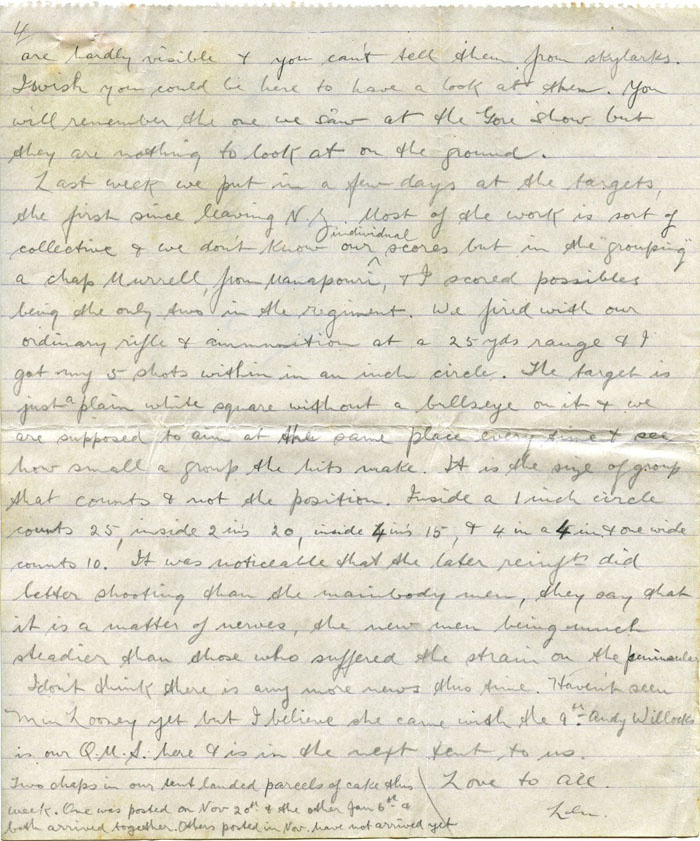 4
are hardly visible & you can't tell them from skylarks.
I wish you could be here to have a look at them. You
will remember the one we saw at the Gore show but
they are nothing to look at on the ground.
Last week we put in a few days at the targets,
the first since leaving N.Z. Most of the work is sort of
individual
collective & we don't know our scores but in the "grouping"
a chap Murrell, from Manapouri, & I scored possibles
being the only two in the regiment. We fired with our
ordinary rifle & ammunition at a 25 yds range & I
got my 5 shots within in an inch circle. The target is
just a plain white square without a bullseye on it & we
are supposed to aim at the same place every time & see
how small a group the hits make. It is the size of group
that counts & not the position. Inside a 1 inch circle
counts 25, inside 2 in's 20, inside 4 in's 15, & 4 in a 4 in & one wide
counts 10. It was noticeable that the later reinfts did
better shooting than the mainbody men, they say that
it is a matter of nerves, the new men being much
steadier than those who suffered the strain on the peninsular
I don't think there is any more news this time. Haven't seen
Looney yet but I believe she came with the 9th. Andy Willocks
is our Q.M.S. here & is in the next tent to us.
Two chaps in our tent landed parcels of cake this
week. One was posted on Nov 20th & the other Jan 6th &
both arrived together. Others posted in Nov. have not arrived yet
Love to all.